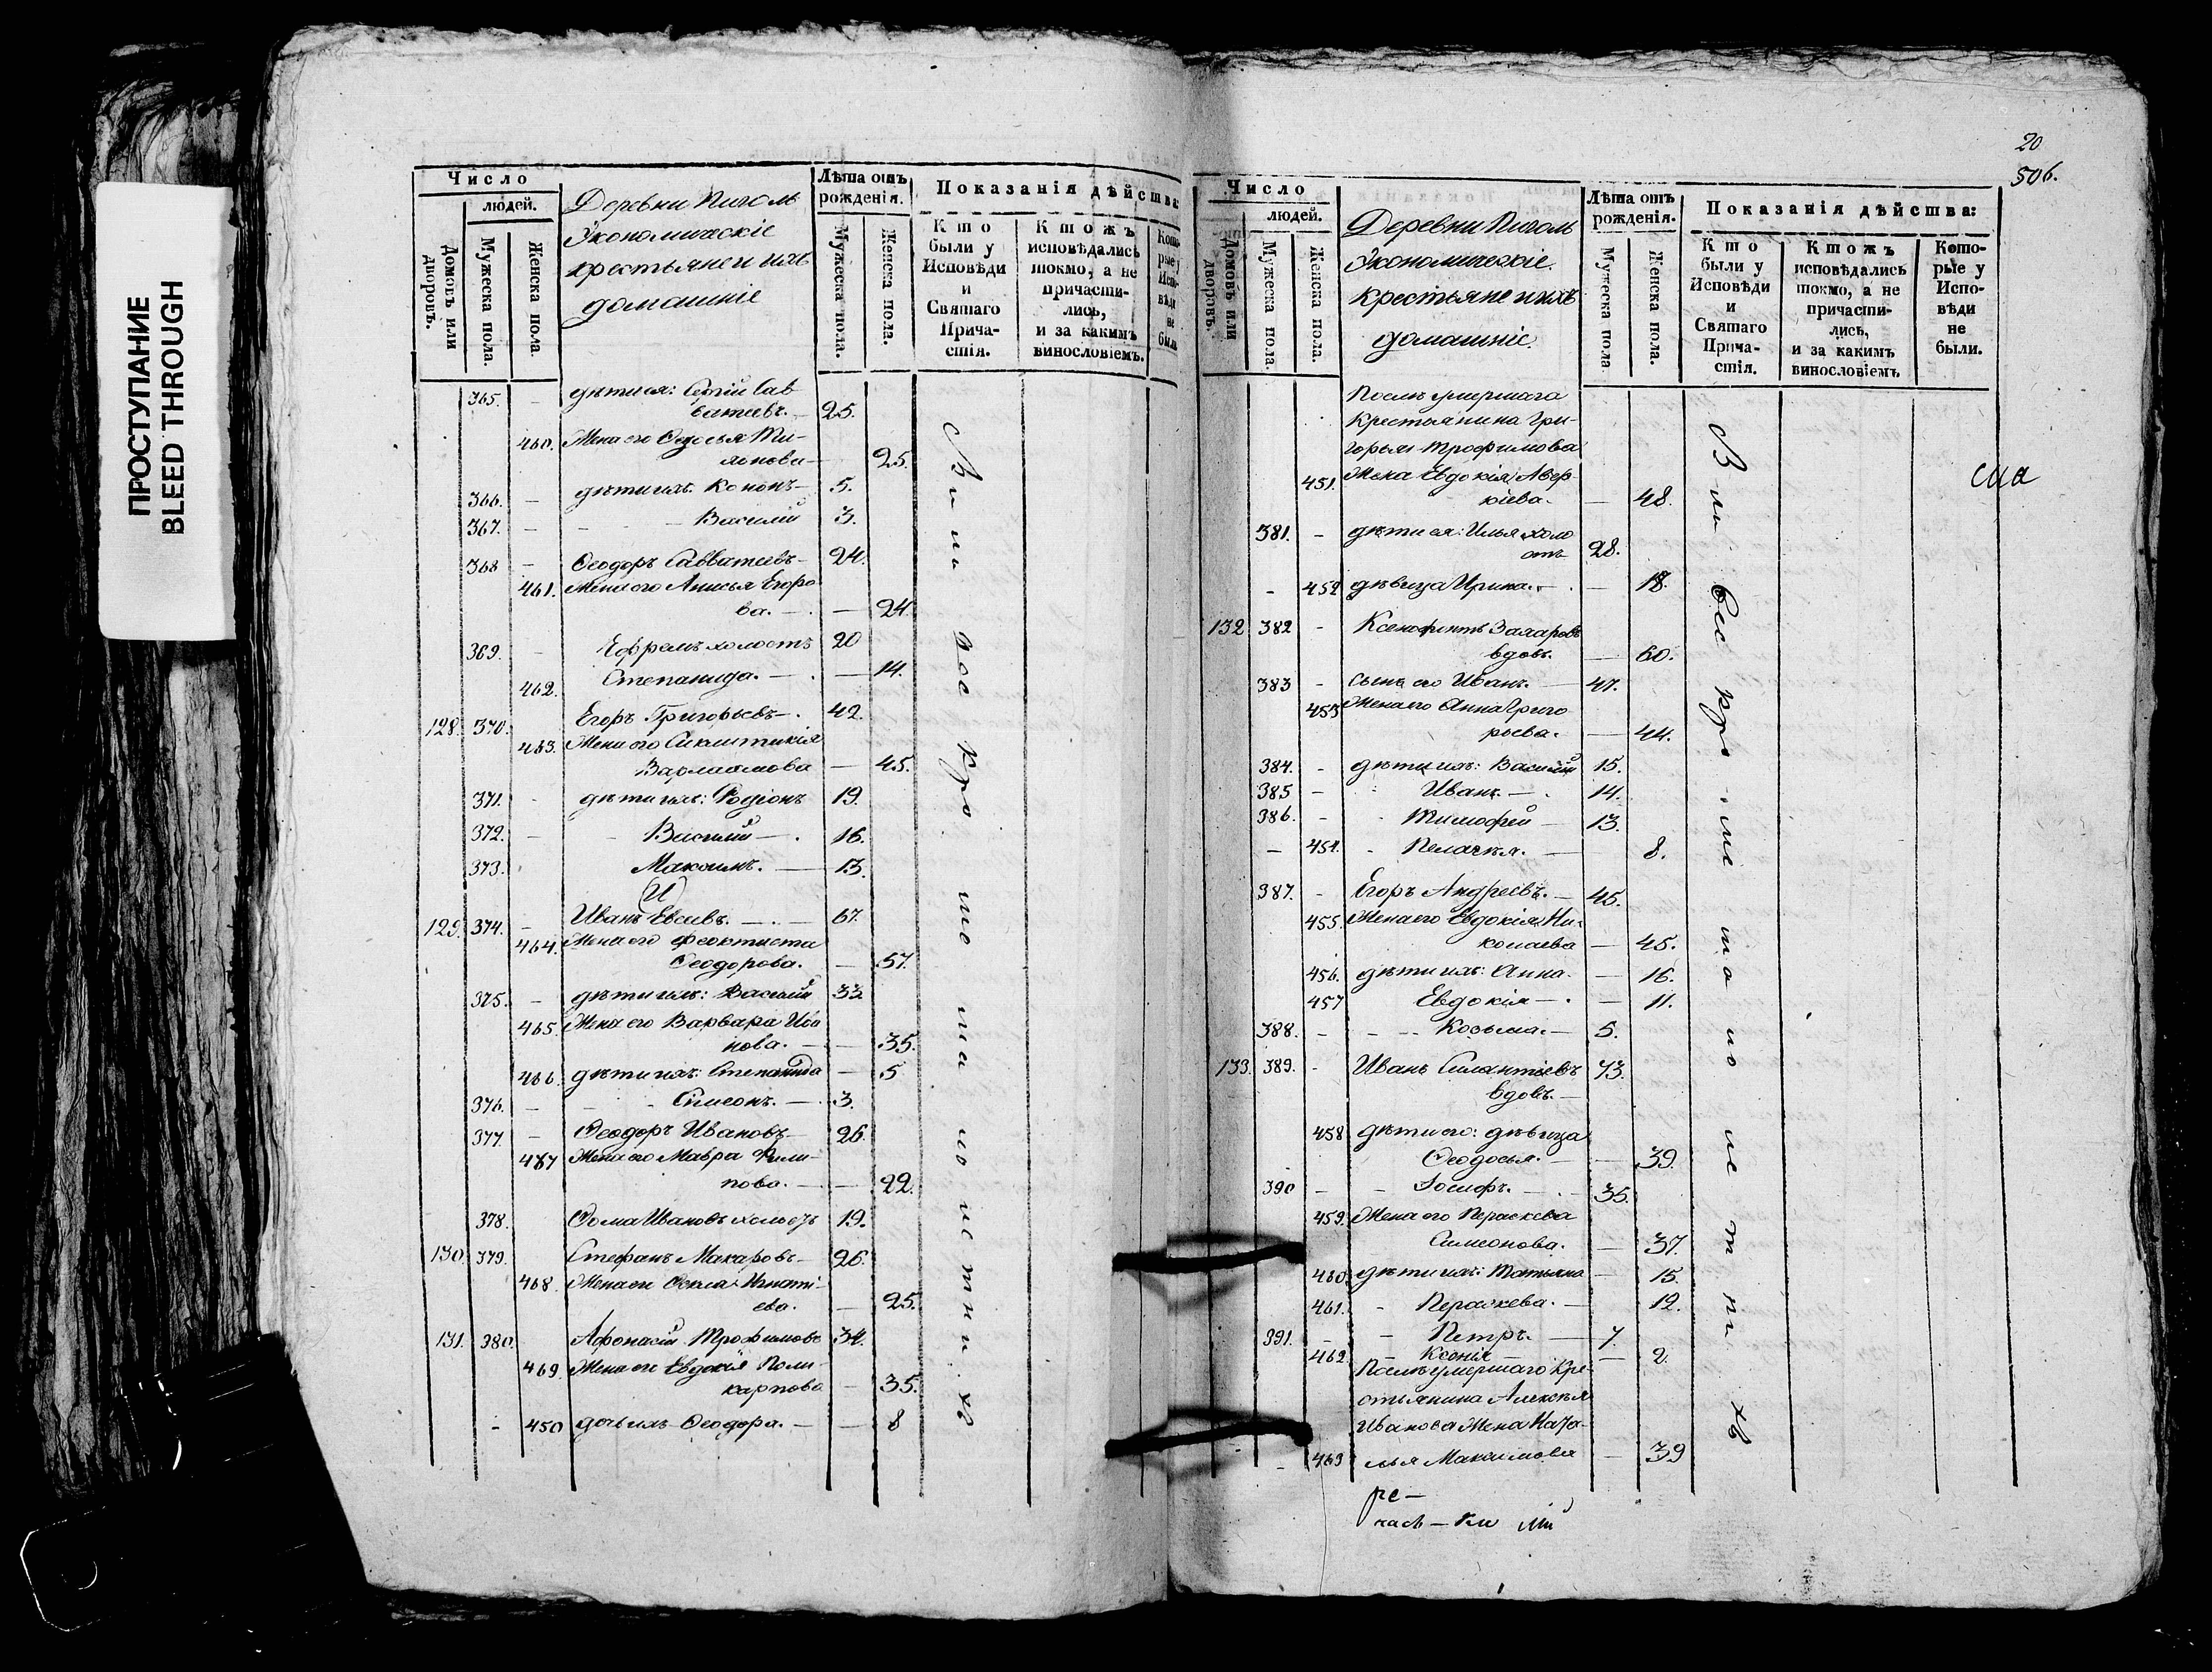 ПРОСТУПАНИЕ
BLEED THROUGH
Число
людей.
Домовъ или дворовъ.
Мужеска пола.
Женска пола.
Деревни Пиголь
Экономическіе
крестьяне и ихъ
домашніе
Лѣта отъ рожденія.
Мужеска пола.
Женска пола.
Показанія дѣйства
Кто были у Исповѣди и Святаго Причастія.
Ктожъ исповѣдались токмо, а не причастились, и за какимъ винословіемъ.
Которые у Исповѣди не были
365. – дѣти ея: Сергій Сав
ватеевъ. – 25.
460. Жена его Ѳедосья Ти-
– 25.
366. – дѣти ихъ: Кононъ – 5.
367. – – Василій 3.
368 – Ѳеодоръ Савватеевъ – 24.
461. Жена его Анисья Егоро
ва. – – 24.
369. – Ефремъ холостъ 20
462. Степанида. – – 14.
128. 370. Егоръ Григорьевъ –. 42.
463. Жена его Синклитикія
Варлаамова – 45.
371. – дѣти ихъ: Родіонъ 19.
372. – – Василій –. 16.
373. Максимъ. – 13.
129. 374. – Иванъ Евсеевъ. –. – 67.
464. Жена его Феоктиста
Ѳеодорова. – 57.
375. – дѣти ихъ: Василій 33
465. Жена его Варвара Ива
нова. – – 35.
466. дѣти ихъ: Степанида – 5
376. – – Симеонъ. –. 3.
377. – Ѳеодоръ Ивановъ – 26.
467 Жена его Мавра Фили-
пова. – – 22.
378. Ѳома Ивановъ холостъ 19.
130. 379. Стефанъ Макаровъ – 26.
468. Жена его Ѳекла Игнаті-
ева. – 25.
131. 380. Афонасій Трофимовъ 34.
469. Жена его Евдокія Поли-
карпова – 35.
- 450 дочь ихъ Ѳеодора. – – 8
20
506.
Число
людей.
Домовъ или дворовъ.
Мужеска пола
Женска пола.
Деревни Пиголь
Экономическіе.
Крестьяне и ихъ
домашніе.
Лѣта отъ рожденія.
Мужеска пола
Женска пола.
Показанія дѣйства:
Кто были у Исповѣди и Святаго Причастія.
Ктожъ исповѣдались токмо, а не причастились, и за какимъ винословіемъ
Которые у Исповѣди не были.
Послѣ умершаго
Крестьянина Гри-
горья Трофимова
451. Жена Евдокія Авер
кіева. – 48.
381. – дѣти ея: Илья холо
стъ 28.
- 452 дѣвица Ирина. – – 18.
132 382 – Ксенофонтъ Захаровъ
вдовъ. – 60.
383 – Сынъ его Иванъ. – 47.
453 Жена его Анна Григо
рьева. – 44.
384. – дѣти ихъ: Василій 15.
385 – Иванъ. –. 14.
386. – - Тимофей – 13.
– 454. - Пелагѣя. – 8.
387. – Егоръ Андреевъ. – 45.
455. Жена его Евдокія Ни-
колаева – 45.
456. дѣти ихъ: Анна. – 16.
457 Евдокія –. – 11.
388. – – – Козьма. – 5.
133. 389. – Иванъ Силантіевъ 73.
вдовъ. –
458 дѣти его: дѣвица
Ѳеодосья. – 39.
390 – – Іосифъ. –. – 35.
459. Жена его Параскева
Симеонова. – 37.
460. дѣти ихъ: Татьяна – 15.
461. - Параскева. – 12.
391. – – Петръ. – 7.
462. – Ксенія – – 2.
Послѣ умершаго Кре-
стьянина Алексѣя
Иванова Жена Ната-
463 лья Максимова – 39